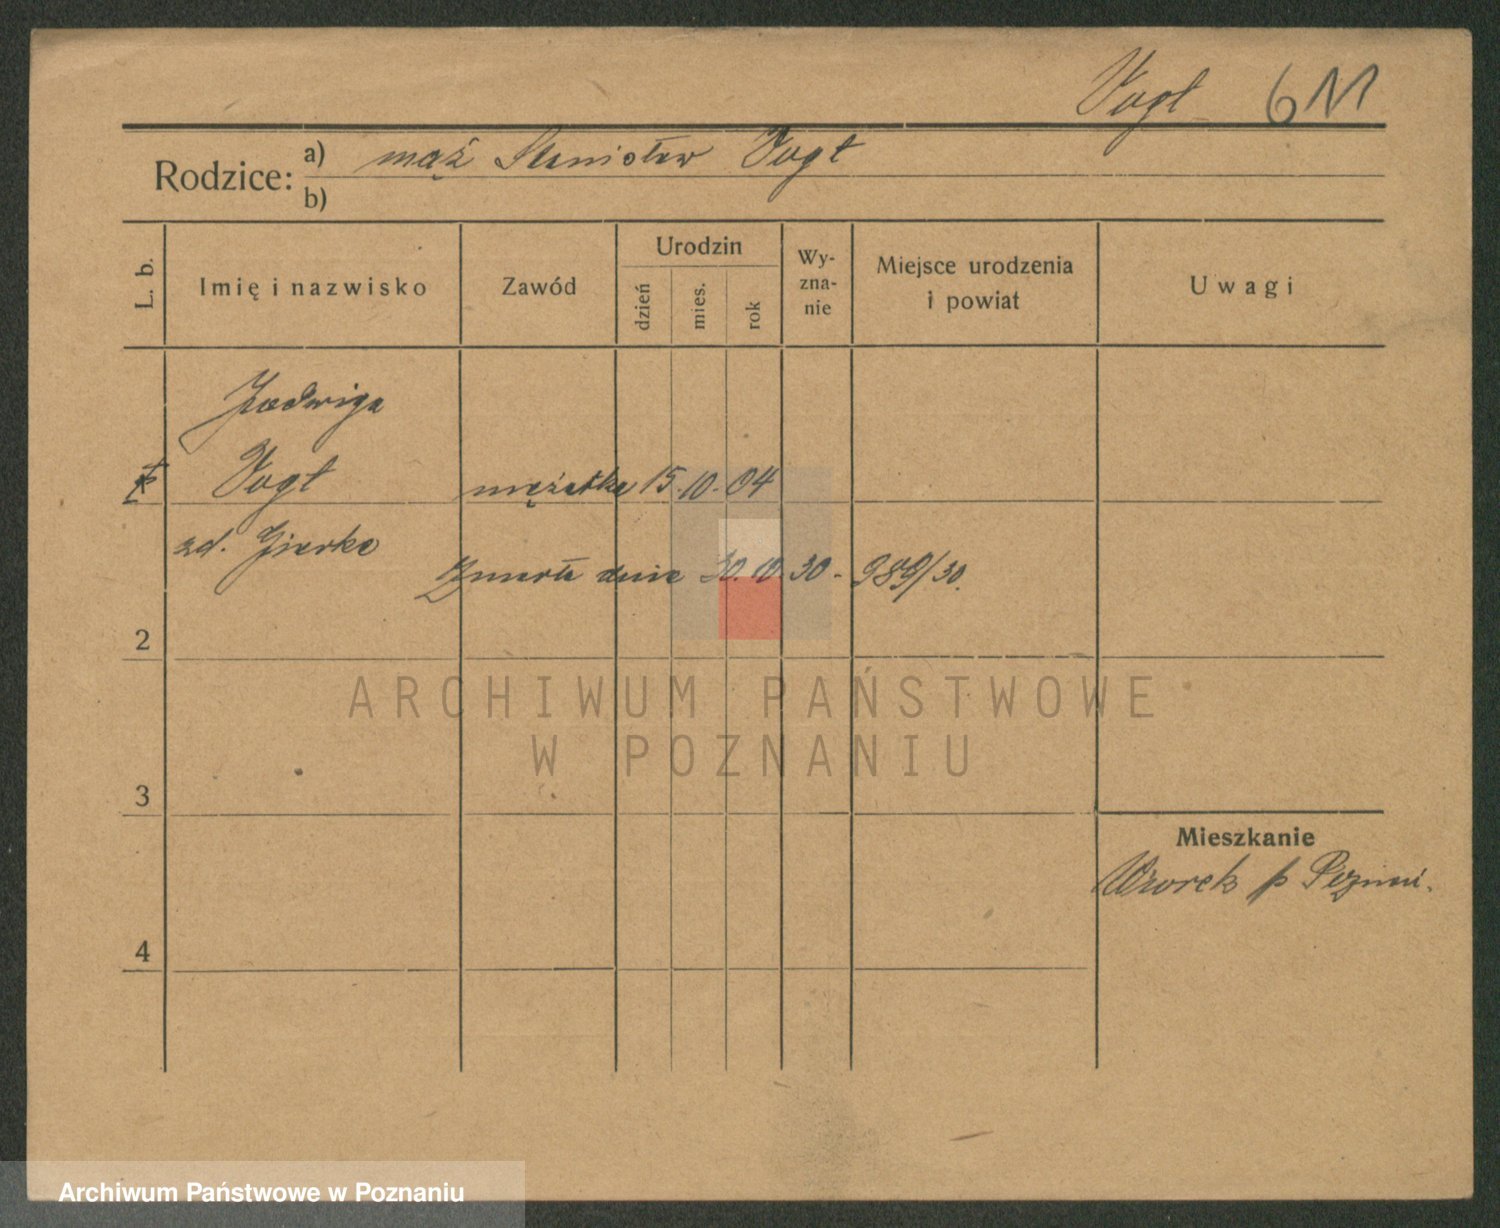 Vogt 6M
Rodzice: a) mąż Stanisław Vogt
b)
L. b.
Imię i nazwisko
Zawód
Urodzin
dzień
mies.
rok
Wy-
zna-
nie
Miejsce urodzenia
i powiat
Uwagi
Jadwiga
Vogt mężatka 15. 10. 04
zd. Gierke
Zmarła dnia 30. 10. 30 - 989/30.
2
ARCHIWUM PAŃSTWOWE
W POZNANIU
3
Mieszkanie
p
4
Archiwum Państwowe w Poznaniu